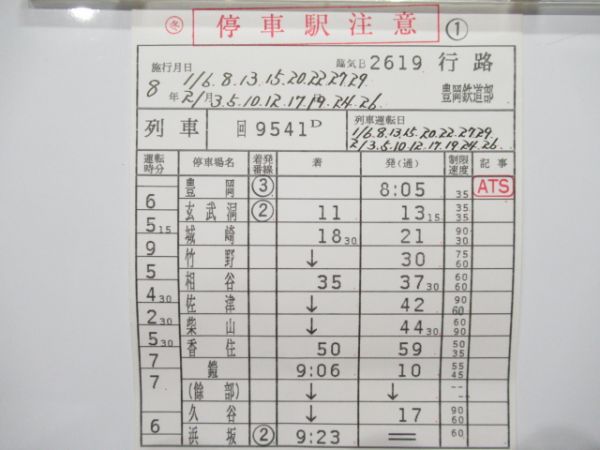 冬 停車駅注意 ①
施行月日 1/6.8.13.15.20.22.27.29 臨気B2619 行路
8年 2/1月 3.5.10.12.17.19.24.26 豊岡鉄道部
列車 回9541D 列車運転日 1/6.8.13.15.20.22.27.29
2/3.5.10.12.17.19.24.26
運転時分 停車場名 着発番線 着 発(通) 制限速度 記事
豊岡 ③ 8:05 35 ATS
6 玄武洞 ② 11 13 15 35 35
5 15 城崎 18 30 21 90 30
9 竹野 ↓ 30 75 60
5 相谷 35 37 30 60 60
4 30 佐津 ↓ 42 90 60
2 30 柴山 ↓ 44 30 60 90
5 30 香住 50 59 50 35
7 鎧 9:06 10 55 45
7 (餘部) ↓ ↓ -- --
久谷 17 90 60
6 浜坂 ② 9:23 = 60